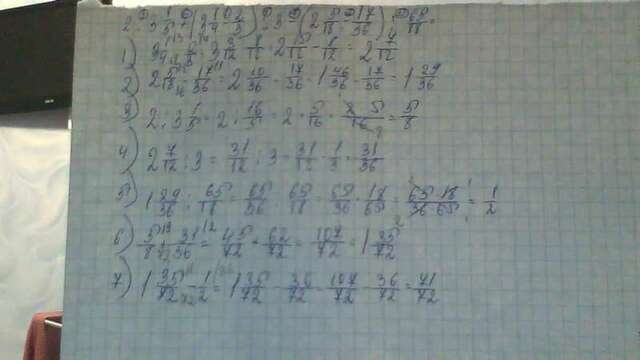 1) 3 1/4 - 2/3 = 3 3/12 - 8/12 = 2 15/12 - 8/12 = 2 7/12
2) 2 5/18 - 17/36 = 2 10/36 - 17/36 = 1 46/36 - 17/36 = 1 29/36
3) 2 : 3 1/5 = 2 : 16/5 = 2 · 5/16 = 2·5/16 = 5/8
4) 2 7/12 : 3 = 31/12 : 3 = 31/12 · 1/3 = 31/36
5) 1 29/36 : 65/18 = 65/36 : 65/18 = 65/36 · 18/65 = 65·18/36·65 = 1/2
6) 5/8 + 31/36 = 45/72 + 62/72 = 107/72 = 1 35/72
7) 1 35/72 - 1/2 = 1 35/72 - 36/72 = 107/72 - 36/72 = 71/72